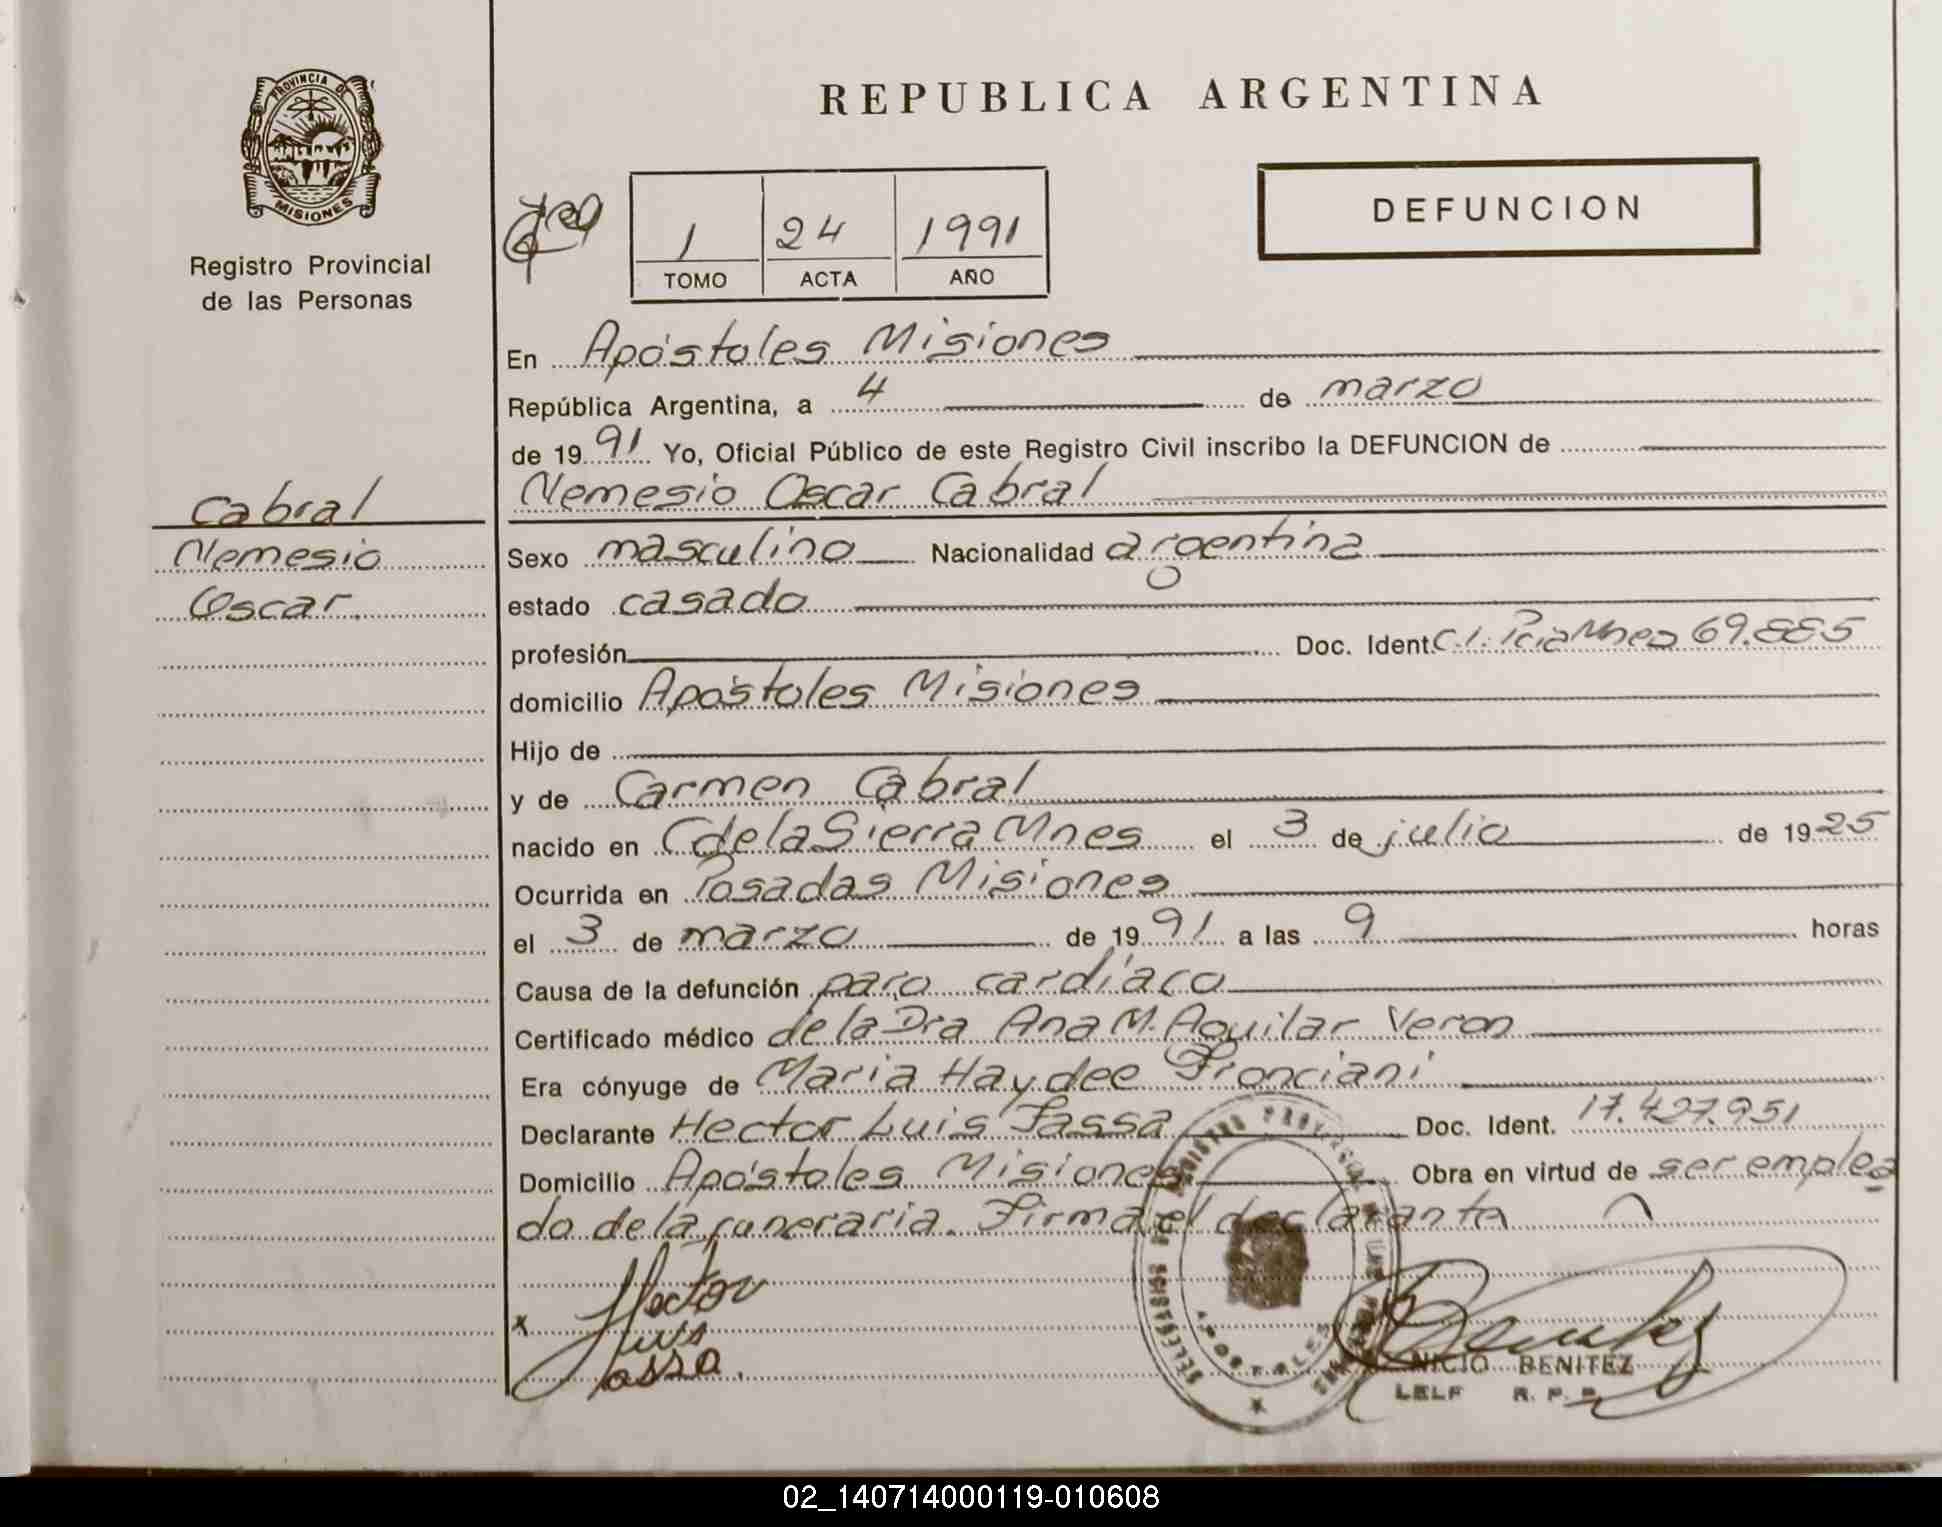 PROVINCIA DE
MISIONES
Registro Provincial
de las Personas
Cabral
Nemesio
Oscar
REPUBLICA ARGENTINA
1 24 1991
TOMO ACTA AÑO
DEFUNCION
En Apóstoles Misiones
República Argentina, a 4 de marzo
de 1991 Yo, Oficial Público de este Registro Civil inscribo la DEFUNCION de
Nemesio Oscar Cabral
Sexo masculino Nacionalidad argentina
estado casado
profesión Doc. Ident. C.I. Pcia Mnes 69.885
domicilio Apóstoles Misiones
Hijo de
y de Carmen Cabral
nacido en C de la Sierra Mnes el 3 de julio de 1925
Ocurrida en Posadas Misiones
el 3 de marzo de 1991 a las 9 horas
Causa de la defunción paro cardíaco
Certificado médico de la Dra Ana M. Aguilar Veron
Era cónyuge de Maria Haydee Fronciani
Declarante Hector Luis Fassa Doc. Ident. 17.427.951
Domicilio Apóstoles Misiones Obra en virtud de ser emplea
do de la funeraria. Firma el declarante
x Hector
Luis
assa.
NICIO BENITEZ
R. P. P.
APOSTOLES
02_140714000119-010608